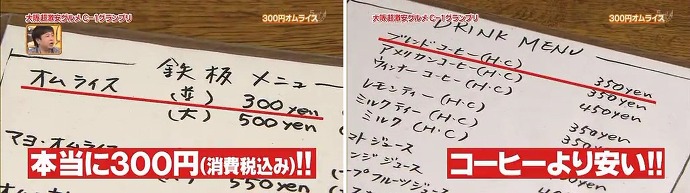 大阪超激安グルメ C-1グランプリ
300円オムライス
鉄板 メニュー
オムライス (並) 300yen
(大) 500yen
マヨ・オムライ
550yen
本当に300円(消費税込み)!!
大阪超激安グルメ C-1グランプリ
300円オムライス
DRINK MENU
ブレンドコーヒー(H・C) 350yen
アメリカンコーヒー(H・C) 350yen
ウィンナーコーヒー(H・C) 450yen
レモンティー(H・C)
ミルクティー(H・C) 350yen
ミルク(H・C)
ジュース
ジュース
プフルーツジュース
コーヒーより安い!!